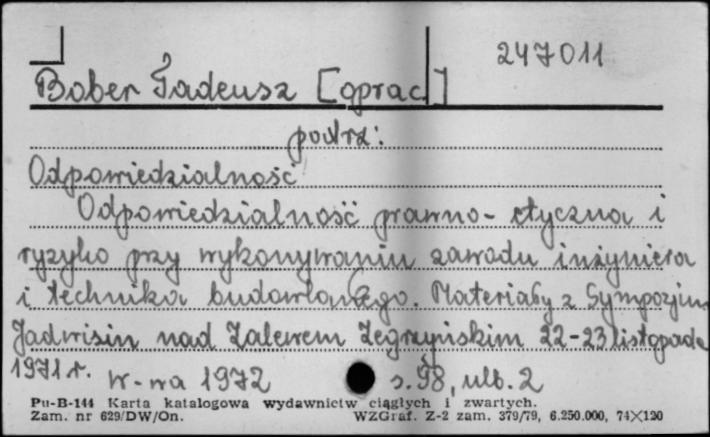 247011
Bober Tadeusz [oprac.]
podrz:
Odpowiedzialność
Odpowiedzialność prawno-etyczna i
ryzyko przy wykonywaniu zawodu inżyniera
i technika budowlanego. Materiały z Sympozjum
Jadwisin nad Zalewem Zegrzyńskim 22-23 listopada
1971 r. W-wa 1972 s. 98, nlb. 2
Pu-B-144 Karta katalogowa wydawnictw ciągłych i zwartych.
Zam. nr 629/DW/On. WZGraf. Z-2 zam. 379/79, 6.250.000, 74×120